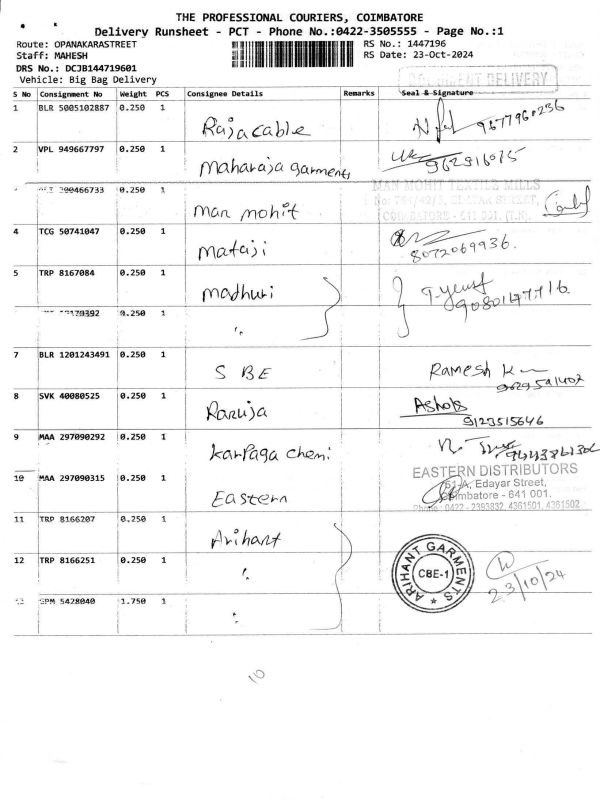 THE PROFESSIONAL COURIERS, COIMBATORE
Delivery Runsheet - PCT - Phone No.:0422-3505555 - Page No.:1
Route: OPANAKARASTREET
Staff: MAHESH
DRS No.: DCJB144719601
Vehicle: Big Bag Delivery
RS No.: 1447196
RS Date: 23-Oct-2024
DOCUMENT DELIVERY
S No Consignment No Weight PCS Consignee Details Remarks Seal & Signature
1 BLR 5005102887 0.250 1 Raja cable 9677960236
2 VPL 949667797 0.250 1 Maharaja garments
200466733 0.250 1 Man mohit
MAN MOHIT TEXTILE MILLS
COIMBATORE - 641 001. (T.N).
4 TCG 50741047 0.250 1 Mataji 8072069936.
5 TRP 8167084 0.250 1 Madhuri
0.250 1 "
7 BLR 1201243491 0.250 1 S BE Ramesh K
8 SVK 40080525 0.250 1 Ashok
9123515646
9 MAA 297090292 0.250 1 Karpaga chemi
10 MAA 297090315 0.250 1 Eastern
EASTERN DISTRIBUTORS
51-A, Edayar Street,
Coimbatore - 641 001.
Phone : 0422 - 2393832, 4361501, 4361502
11 TRP 8166207 0.250 1 Arihant
12 TRP 8166251 0.250 1 "
ARIHANT GARMENTS
CBE-1
★
23/10/24
13 GPM 5428040 1.750 1 "
10